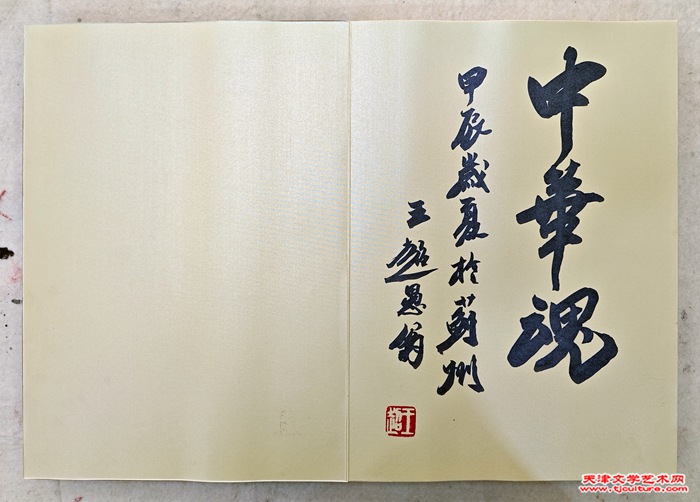 中華魂
甲辰歲夏於薊州
王超愚翁
王超
天津文学艺术网
www.tjculture.com